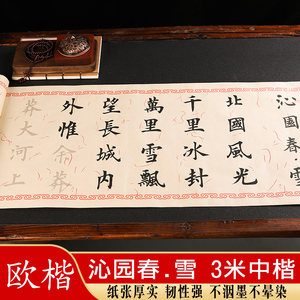 沁園春雪
北國風光
千里冰封
萬里雪飄
望長城内
外惟余莽
莽大河上
欧楷
沁园春.雪 3米中楷
纸张厚实 韧性强 不洇墨不晕染